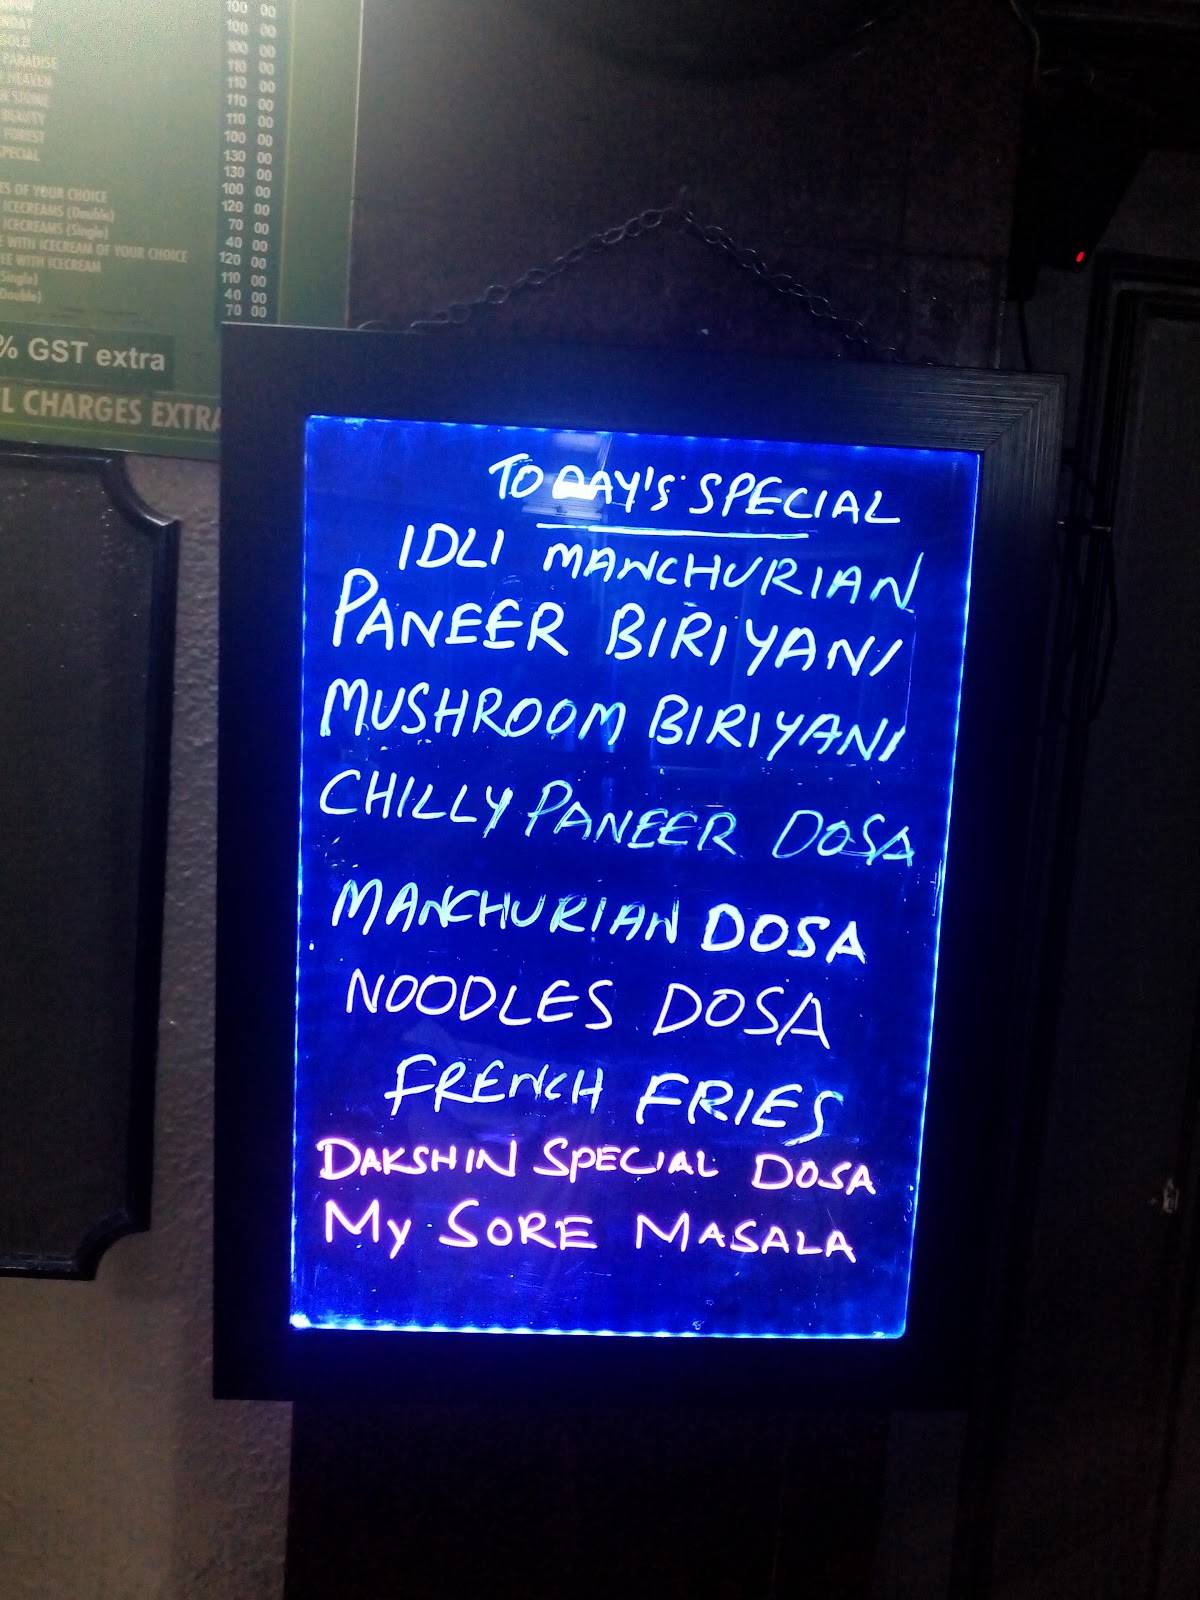 100 00
NDAY 100 00
100 00
PARADISE 110 00
HEAVEN 110 00
110 00
BEAUTY 110 00
FOREST 100 00
SPECIAL 130 00
130 00
ES OF YOUR CHOICE 100 00
ICECREAMS (Double) 120 00
ICECREAMS (Single) 70 00
E WITH ICECREAM OF YOUR CHOICE 40 00
EE WITH ICECREAM 120 00
Single) 110 00
Double) 40 00
70 00
% GST extra
L CHARGES EXTRA
TODAY'S SPECIAL
IDLI MANCHURIAN
PANEER BIRIYANI
MUSHROOM BIRIYANI
CHILLY PANEER DOSA
MANCHURIAN DOSA
NOODLES DOSA
FRENCH FRIES
DAKSHIN SPECIAL DOSA
My SORE MASALA